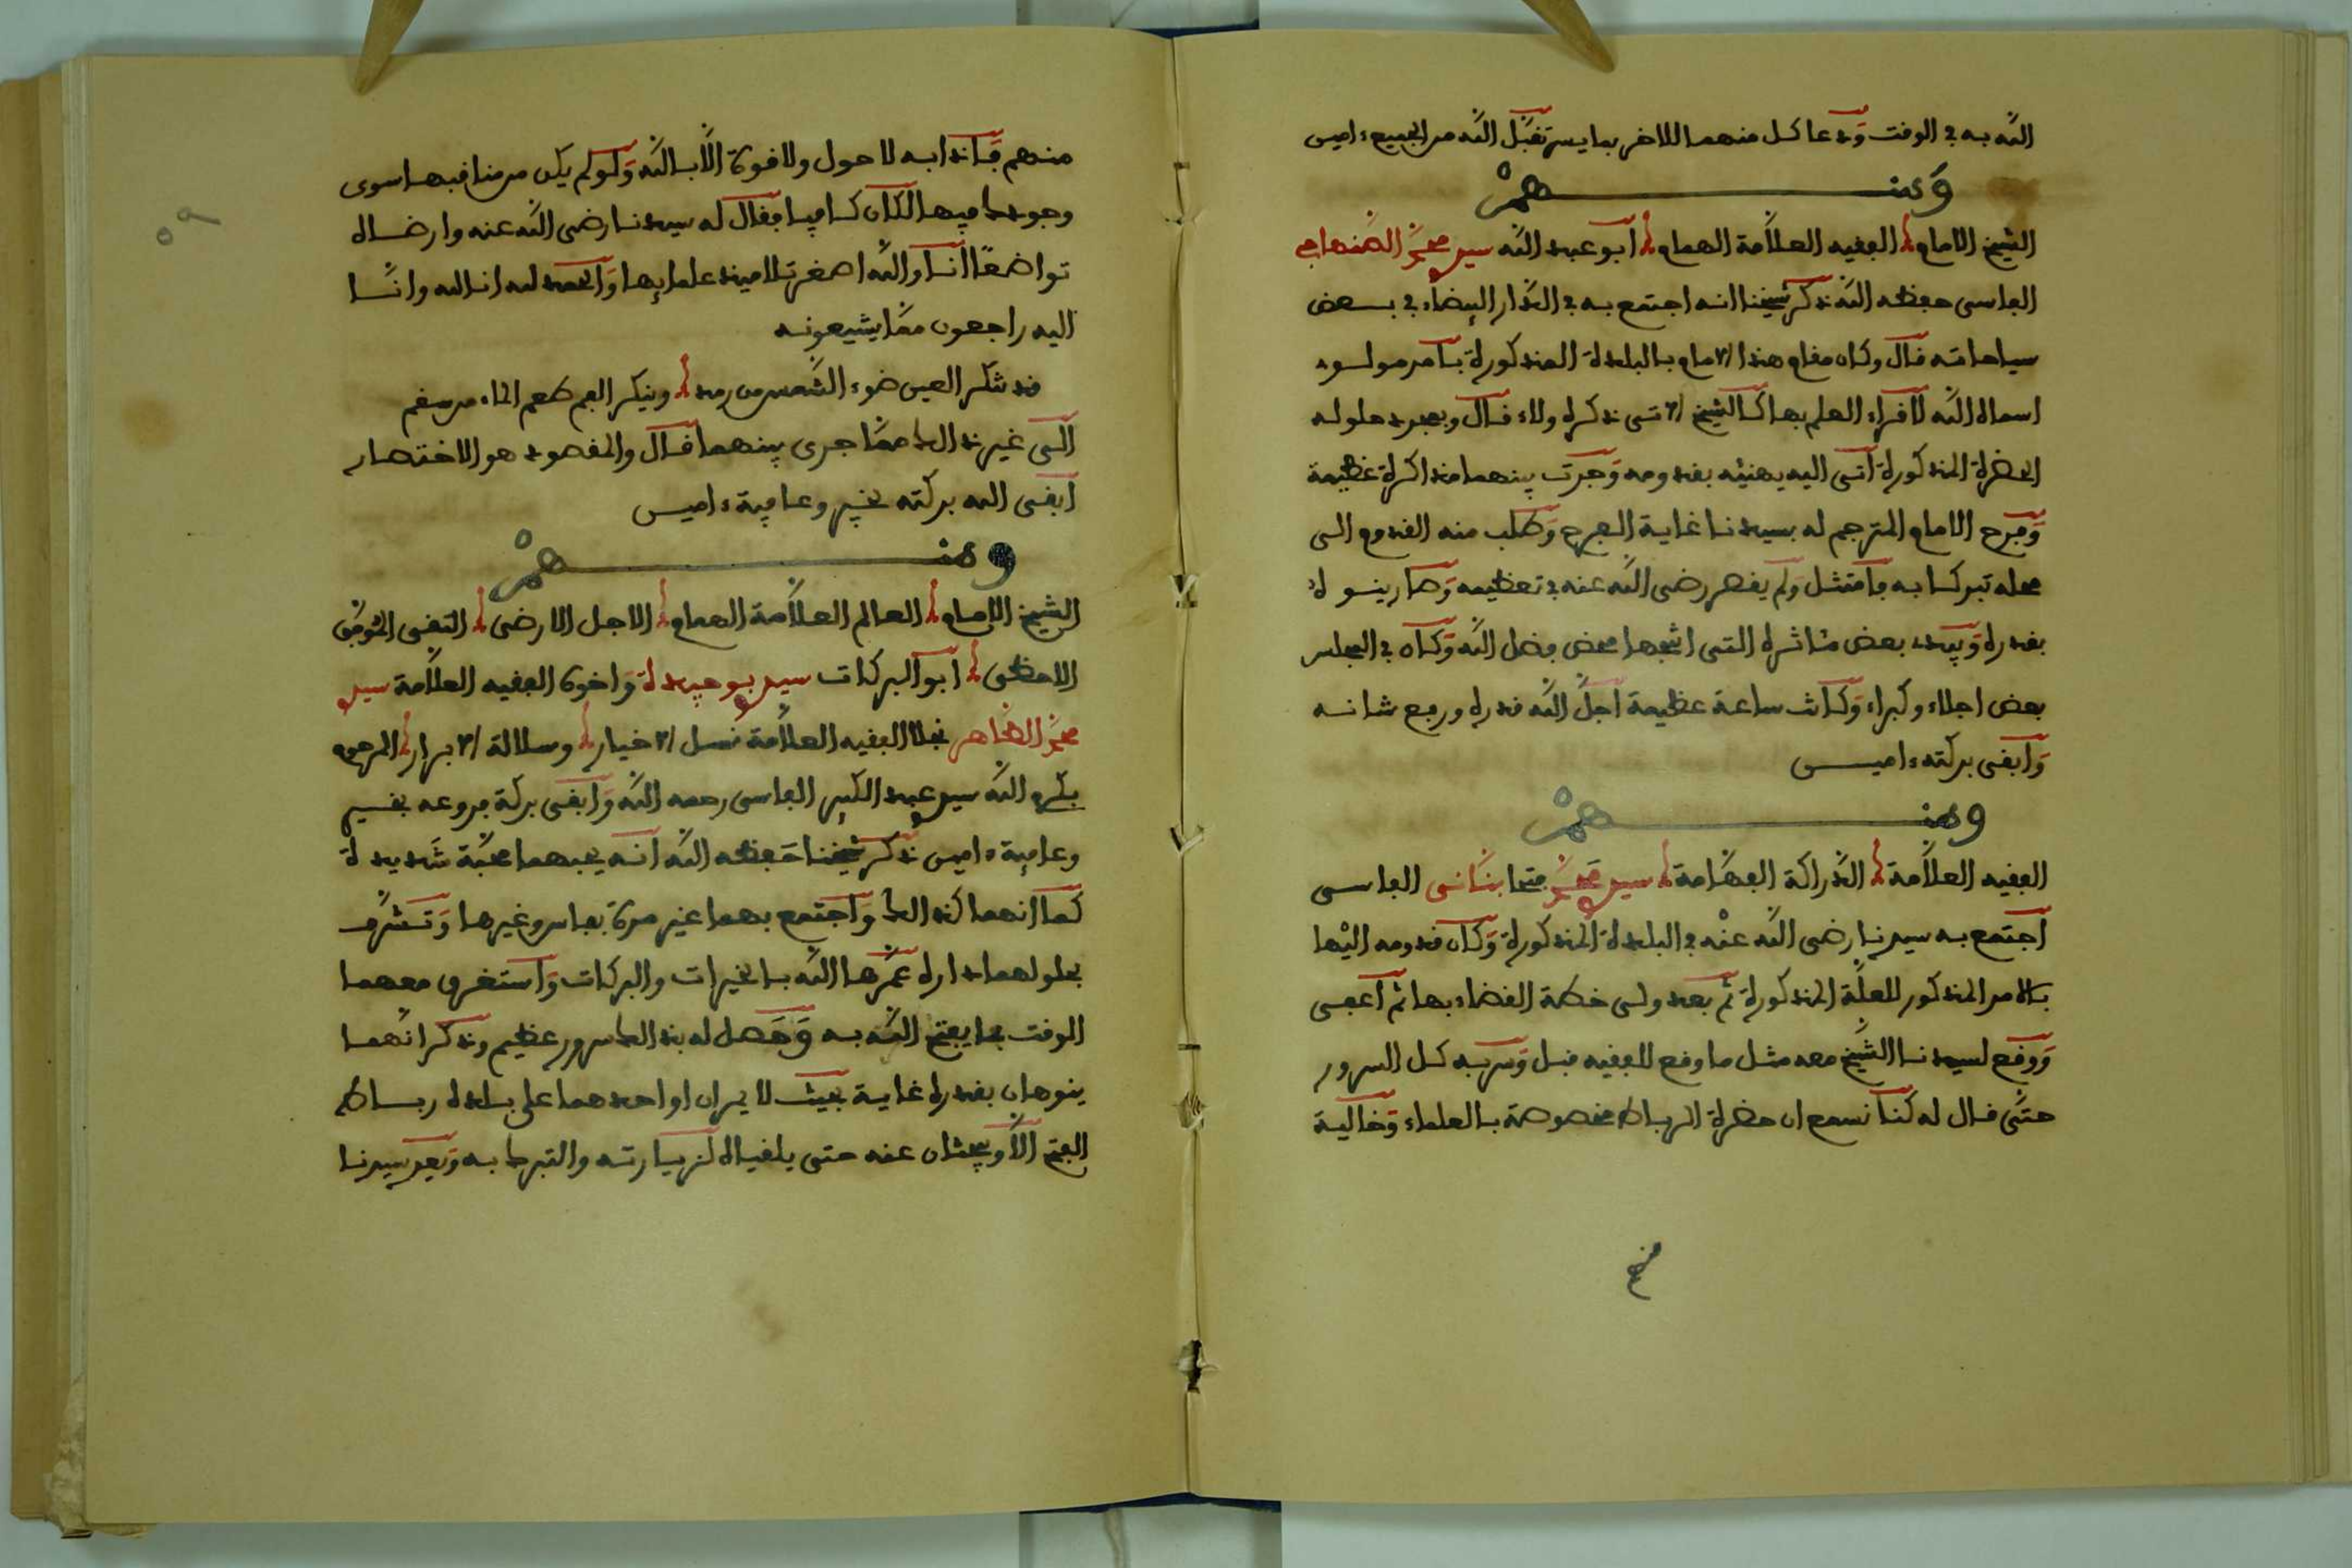 الله به في الوقت ودعا كل منهما للاخر بما يسر تقبل الله من الجميع ءامين
ومنهم
الشيخ الامام الفقيه العلامة الهمام ابو عبد الله سيدي محمد الصنهاجي
الفاسي حفظه الله ذكر شيخنا انه اجتمع به في الدار البيضاء في بعض
سياحاته قال وكان مقام هذا الامام بالبلدة المذكورة بامر مولوي
اسماه الله لاقراء العلم بها كالشيخ الاتي ذكره ولاء قال وبمجرد حلوله
الحضرة المذكورة اتى اليه يهنيه بقدومه وجرت بينهما مذاكرة عظيمة
وفرح الامام المترجم له بسيدنا غاية الفرح وطلب منه القدوم الى
محله تبركا به فامتثل ولم يقصر رضي الله عنه في تعظيمه وصار ينوه
بقدره ويبدي بعض مئاثره التي انتجها محض فضل الله وكان في المجلس
بعض اجلاء وكبراء وكانت ساعة عظيمة اجل الله قدره ورفع شانه
وابقى بركته ءاميـن
ومنهم
الفقيه العلامة الدراكة الفهامة سيدي محمد فتحا بناني الفاسي
اجتمع به سيدنا رضي الله عنه في البلدة المذكورة وكان قدومه اليها
بالامر المذكور للعلة المذكورة ثم بعد ولي خطة القضاء بها ثم اعفي
ووقع لسيدنا الشيخ معه مثل ما وقع للفقيه قبل وسر به كل السرور
حتى قال له كنا نسمع ان حضرة الرباط مخصوصة بالعلماء وخالية
منهم
٥٩
منهم فاذا به لا حول ولا قوة الا بالله ولو لم يكن من مناقبها سوى
وجودك فيها لكان كافيا فقال له سيدنا رضي الله عنه وارضاه
تواضعا انا والله اصغر تلاميذ علمايها والحمد لله انا لله وانا
اليه راجعون مما يشيعونه
قد تنكر العين ضوء الشمس من رمد وينكر الفم طعم الماء من سقم
الى غير ذلك مما جرى بينهما قال والمقصود هو الاختصار
ابقى الله بركته بخير وعافية ءامين
ومنهم
الشيخ الامام العالم العلامة الهمام الاجل الارضى التقي الموفق
الاحظى ابو البركات سيدي بوجيدة واخوه الفقيه العلامة سيدي
محمد الطاهر نجلا الفقيه العلامة نسل الاخيار وسلالة الابرار المرحوم
بكرم الله سيدي عبد الكبير الفاسي رحمه الله وابقى بركة فروعه بخير
وعافية ءامين ذكر شيخنا حفظه الله انه يحبهما محبة شديدة
كما انهما كذلك واجتمع بهما غير مرة بفاس وغيرها وتشرف
بحلولهما داره عمرها الله بالخيرات والبركات واستغرق معهما
الوقت بما يفتح الله به وحصل له بذلك سرور عظيم وذكر انهما
ينوهان بقدره غاية بحيث لا يمران او احدهما على بلده رباط
الفتح الا ويبحثان عنه حتى يلقياه لزيارته والتبرك به وبعد سيدنا